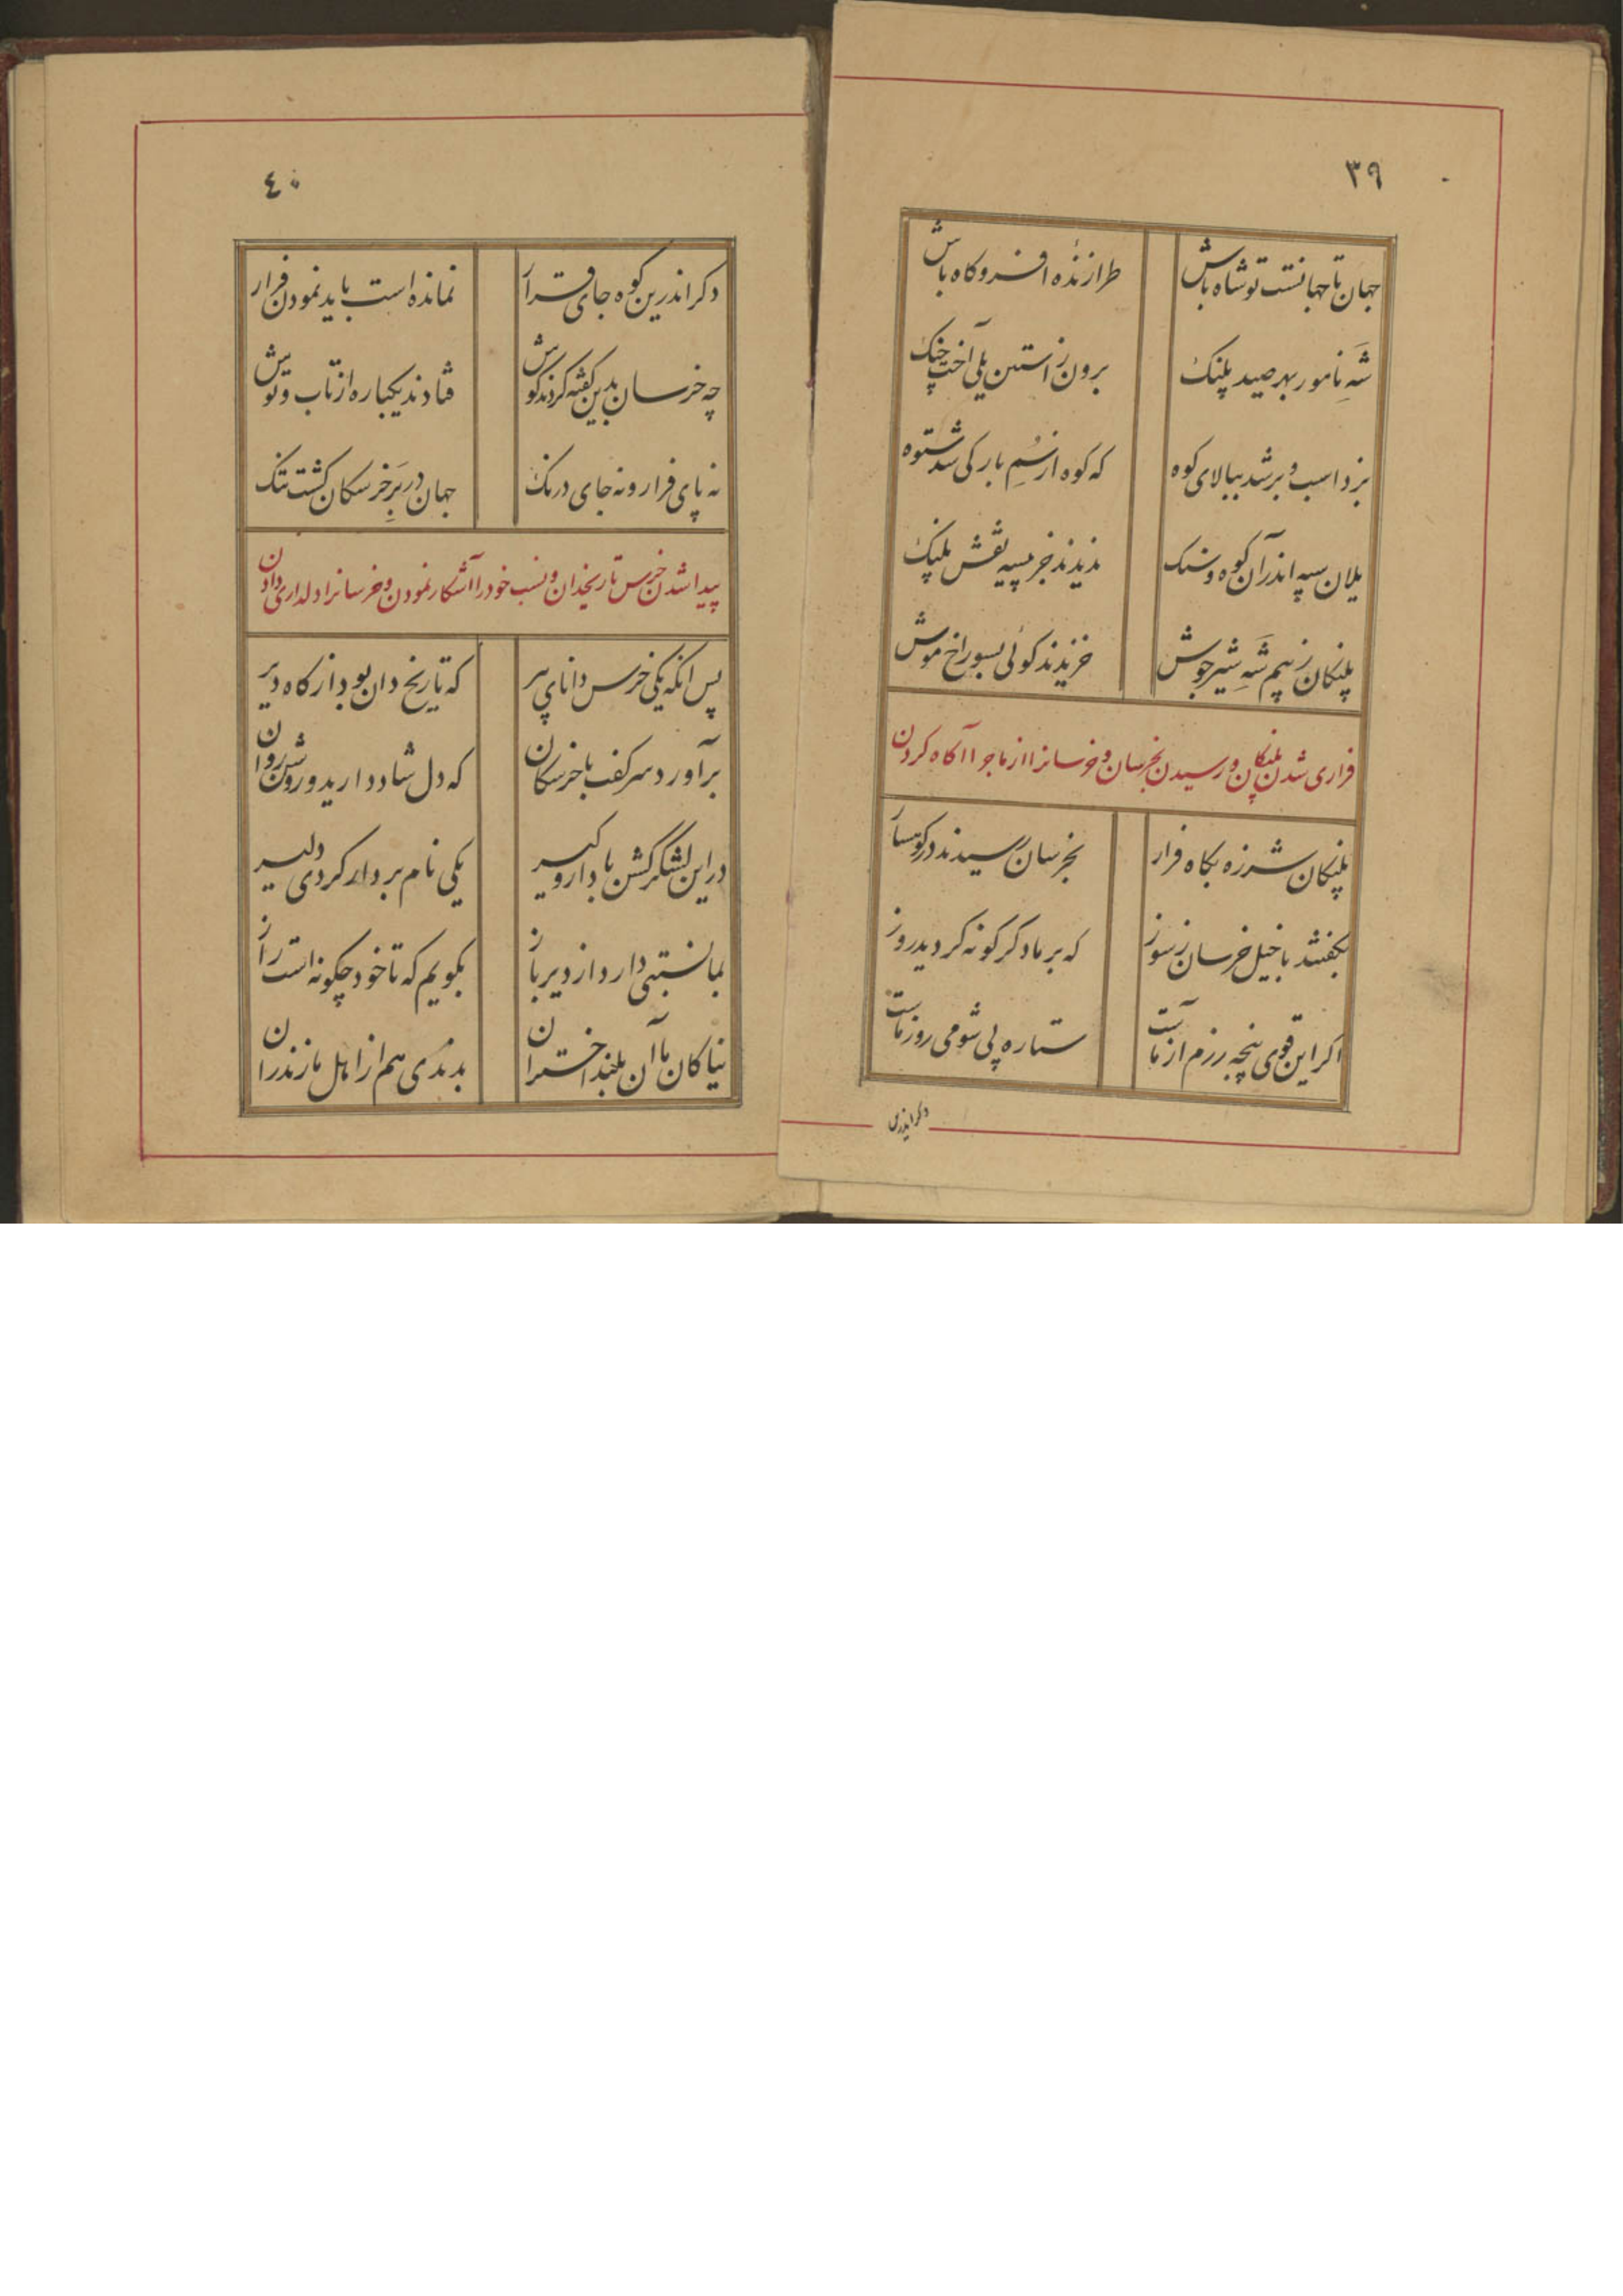 ۳۹
جهان تا جهانست تو شاه باش طرازندهٔ افسر و کاه باش
شَهِ نامور بهر صید پلنک برون زاستین یلی آخت چنک
بزد اسب و بر شد ببالای کوه که کوه از سُمِ بارکی شد ستوه
یلان سپه اندر آن کوه و سنک ندیدند جز پیسه نقش پلنک
پلنکان ز بیم شَهِ شیر جوش خزیدند کوئی بسوراخ موش
فراری شدن پلنکان و رسیدن بخرسان و خرسانرا از ماجرا آکاه کردن
پلنکان شرزه بکاه فرار بخرسان رسیدند در کوهسار
بکفتند با خیل خرسان ز سوز که بر ما دکرکونه کردید روز
اکر این قوی پنجه رزم آزماست ستاره پی شومی روز ماست
دکر اندرین
٤٠
دکر اندرین کوه جای قرار نمانده است باید نمودن فرار
چه خرسان بدین کفته کردند کوش فتادند یکباره از تاب و توش
نه پای فرار و نه جای درنک جهان در بَرِ خرسکان کشت تنک
پیدا شدن خرس تاریخدان و نسب خود را آشکار نمودن و خرسانرا دلداری دادن
پس انکه یکی خرس دانای پیر که تاریخ دان بود از کاه دیر
برآورد سر کفت با خرسکان که دل شاد دارید و روشن روان
در این لشکر کشن با دار و کیر یکی نام بردار کردی دلیر
بما نسبتی دارد از دیر باز بکویم که تا خود چکونه است راز
نیاکان ما آن بلند اختران بدندی هم از اهل مازندران